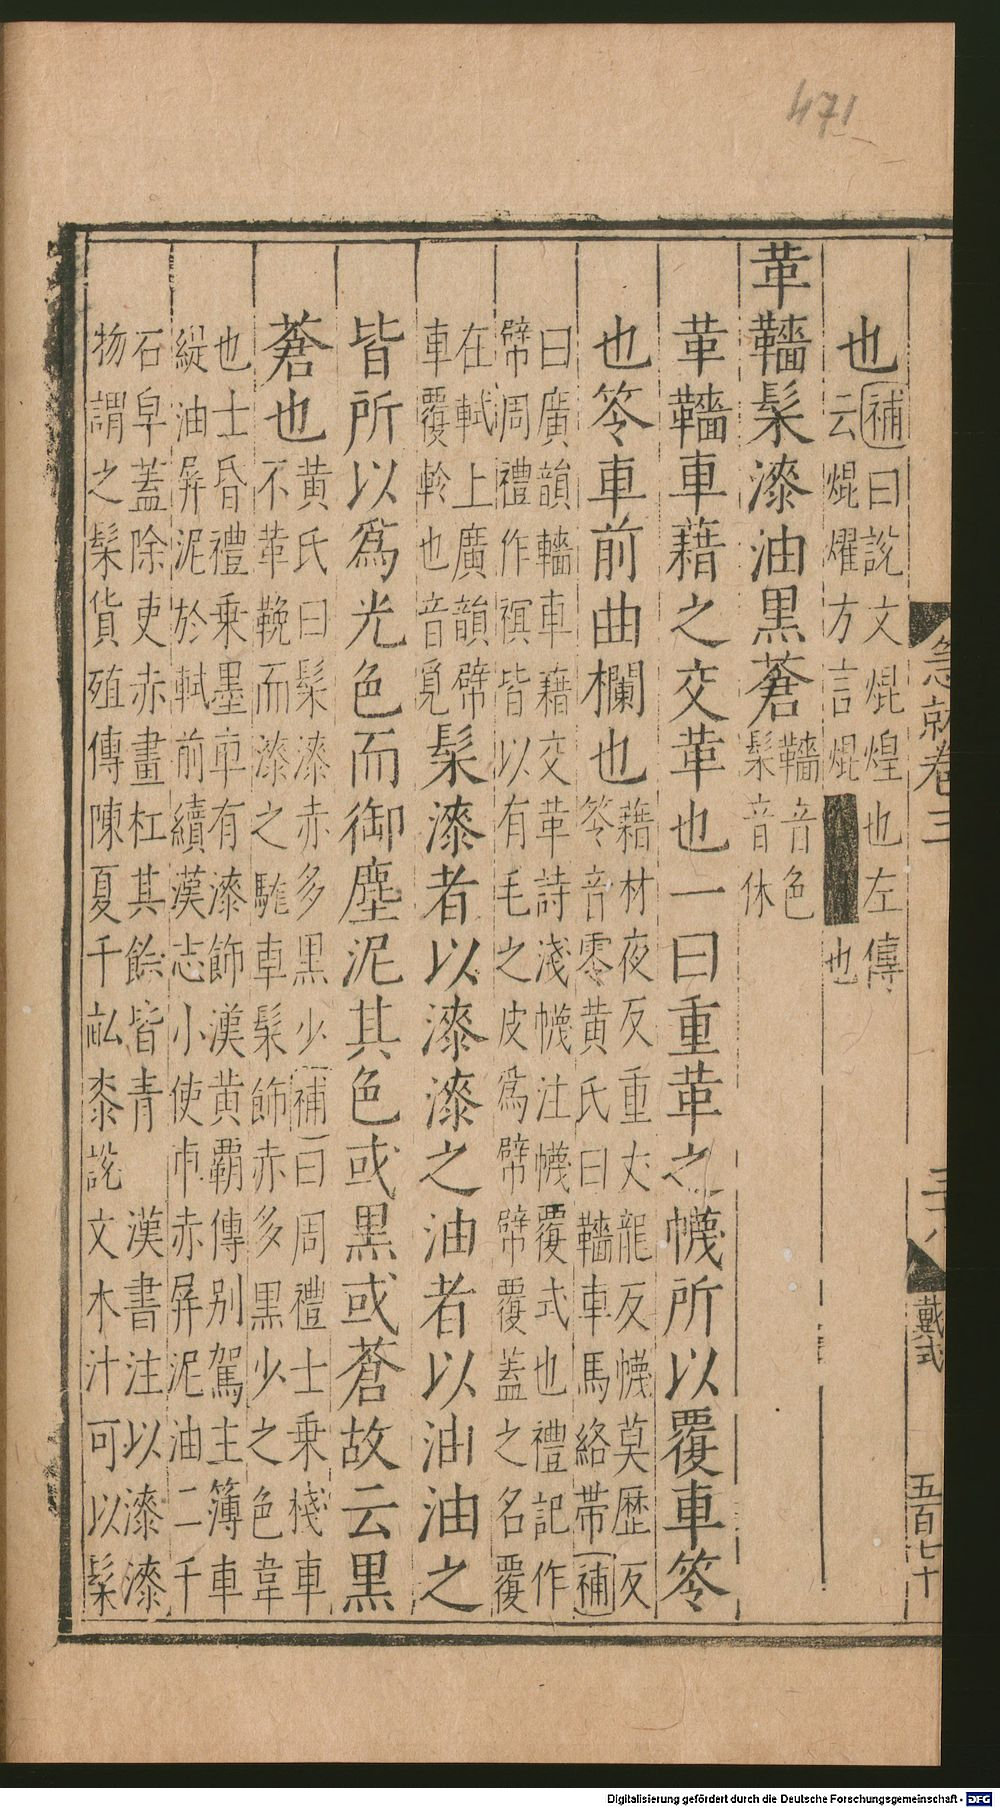 471
也補曰說文焜煌也左傳
云焜燿方言焜 也
革轖髹漆油黑蒼轖音色
髹音休
革轖車藉之交革也一曰重革之幭所以覆車笭
也笭車前曲欄也藉材夜反重丈龍反幭莫歷反
笭音零黄氏曰轖車馬絡帶補
曰廣韻轖車藉交革詩淺幭注幭覆式也禮記作
幦周禮作䙝皆以有毛之皮爲幦幦覆蓋之名覆
在軾上廣韻幦
車覆軨也音覓
髹漆者以漆漆之油者以油油之
皆所以爲光色而御塵泥其色或黑或蒼故云黑
蒼也黄氏曰髹漆赤多黑少補曰周禮士乘棧車
不革鞔而漆之駹車髹飾赤多黑少之色韋
也士昏禮乘墨車有漆飾漢黄霸傳别駕主簿車
緹油屏泥於軾前續漢志小使車赤屏泥油二千
石皁蓋除吏赤畫杠其餘皆青 漢書注以漆漆
物謂之髹貨殖傳陳夏千畝桼説文木汁可以髹
急就卷三
二十八
戴式
五百七十
Digitalisierung gefördert durch die Deutsche Forschungsgemeinschaft - DFG